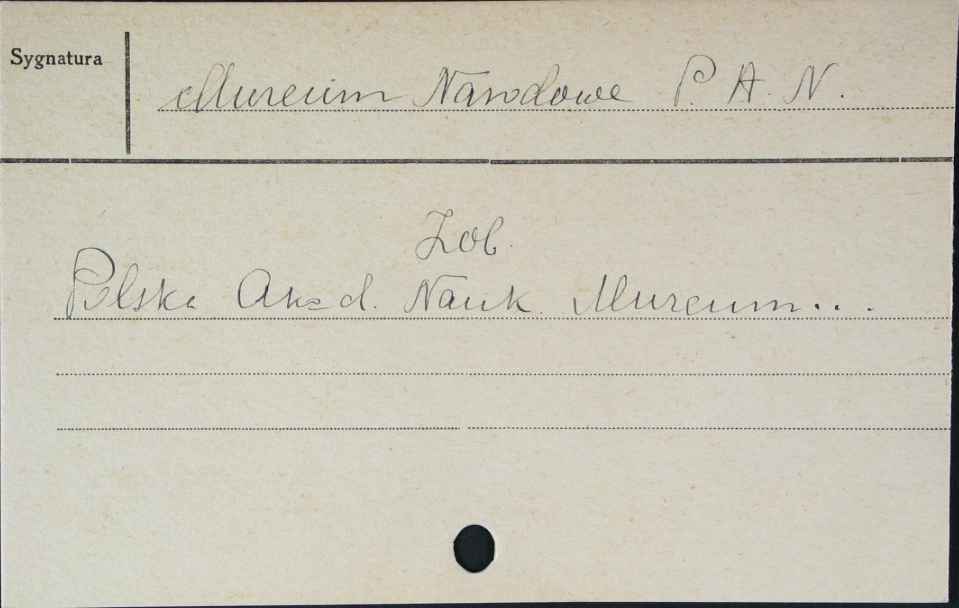 Sygnatura
Muzeum Narodowe P. A. N.
Zob.
Polska Akad. Nauk. Muzeum...